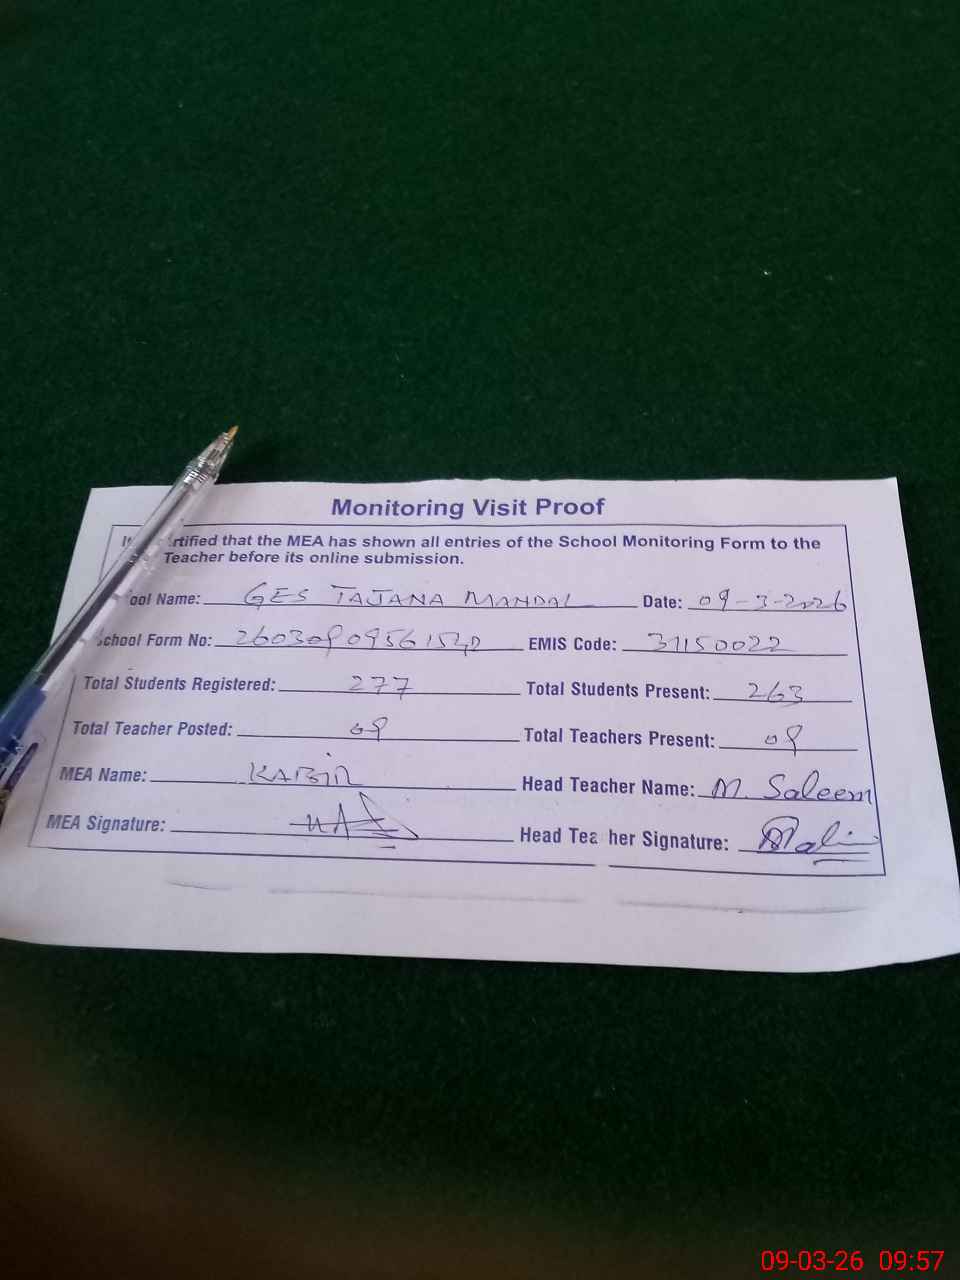 Monitoring Visit Proof
It rtified that the MEA has shown all entries of the School Monitoring Form to the
Teacher before its online submission.
ool Name: GES TAJANA MANDAL Date: 09-3-2026
chool Form No: EMIS Code: 37150022
Total Students Registered: 277 Total Students Present: 263
Total Teacher Posted: 09 Total Teachers Present: 09
MEA Name: KABIR Head Teacher Name: M. Saleem
MEA Signature: Head Teacher Signature:
09-03-26 09:57